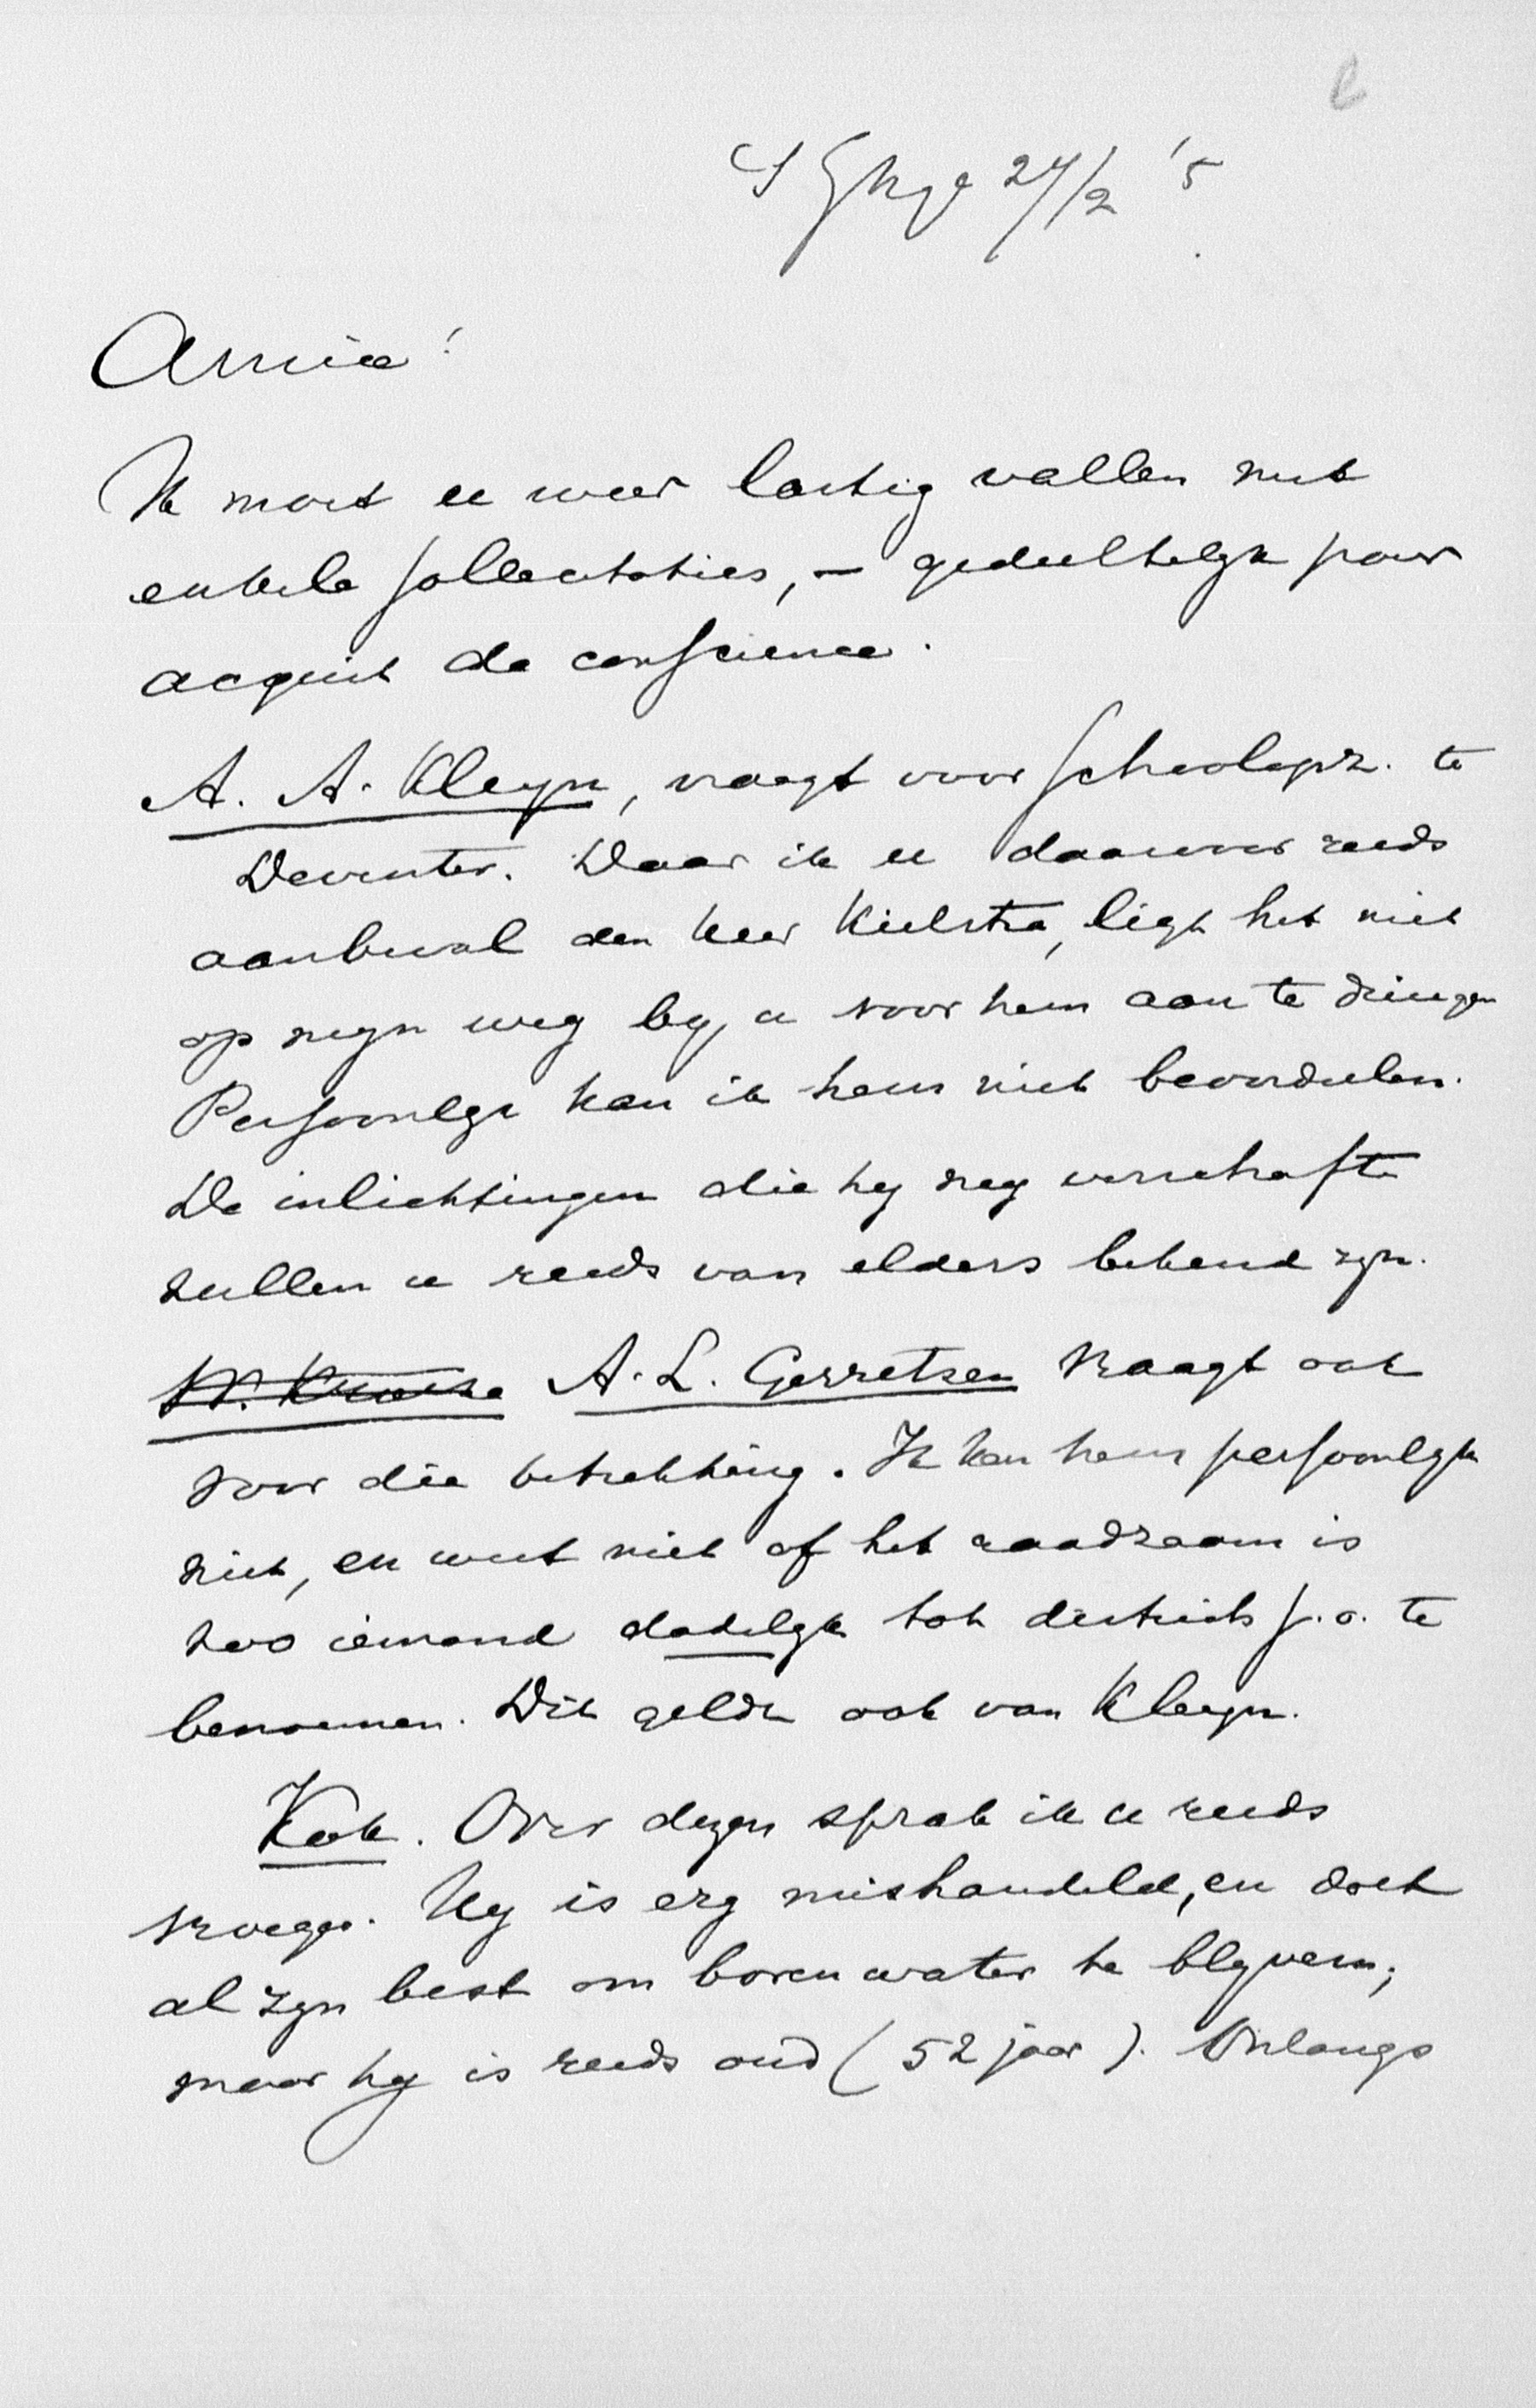 'S Ghge 27/2 '5
Amice!
Ik moet u weer lastig vallen met
enkele sollicitaties, — gedeeltelyk pour
acquit de conscience.
A. A. Kleyn, vraagt voor schoolopz. te
Deventer. Daar ik u daarvoor reeds
aanbeval den heer Kielstra, ligt het niet
op myn weg by u voor hem aan te dringen
Persoonlyk kan ik hem niet beoordeelen.
De inlichtingen die hy my verschafte
zullen u reeds van elders bekend zyn.
A. L. Gerretsen vraagt ook
voor die betrekking. Ik ken hem persoonlyk
niet, en weet niet of het raadzaam is
zoo iemand dadelyk tot districts s.o. te
benoemen. Dit geldt ook van Kleyn.
Kok. Over dezen sprak ik u reeds
vroeger. Hy is erg mishandeld, en doet
al zyn best om boven water te blyven;
maar hy is reeds oud (52 jaar). Onlangs